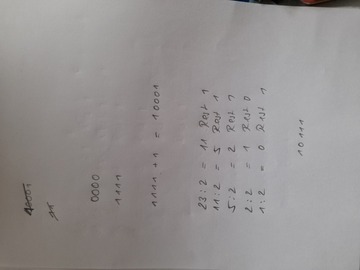 0000
1111
1111 + 1 = 10001
23 : 2 = 11 Rest 1
11 : 2 = 5 Rest 1
5 : 2 = 2 Rest 1
2 : 2 = 1 Rest 0
1 : 2 = 0 Rest 1
10111